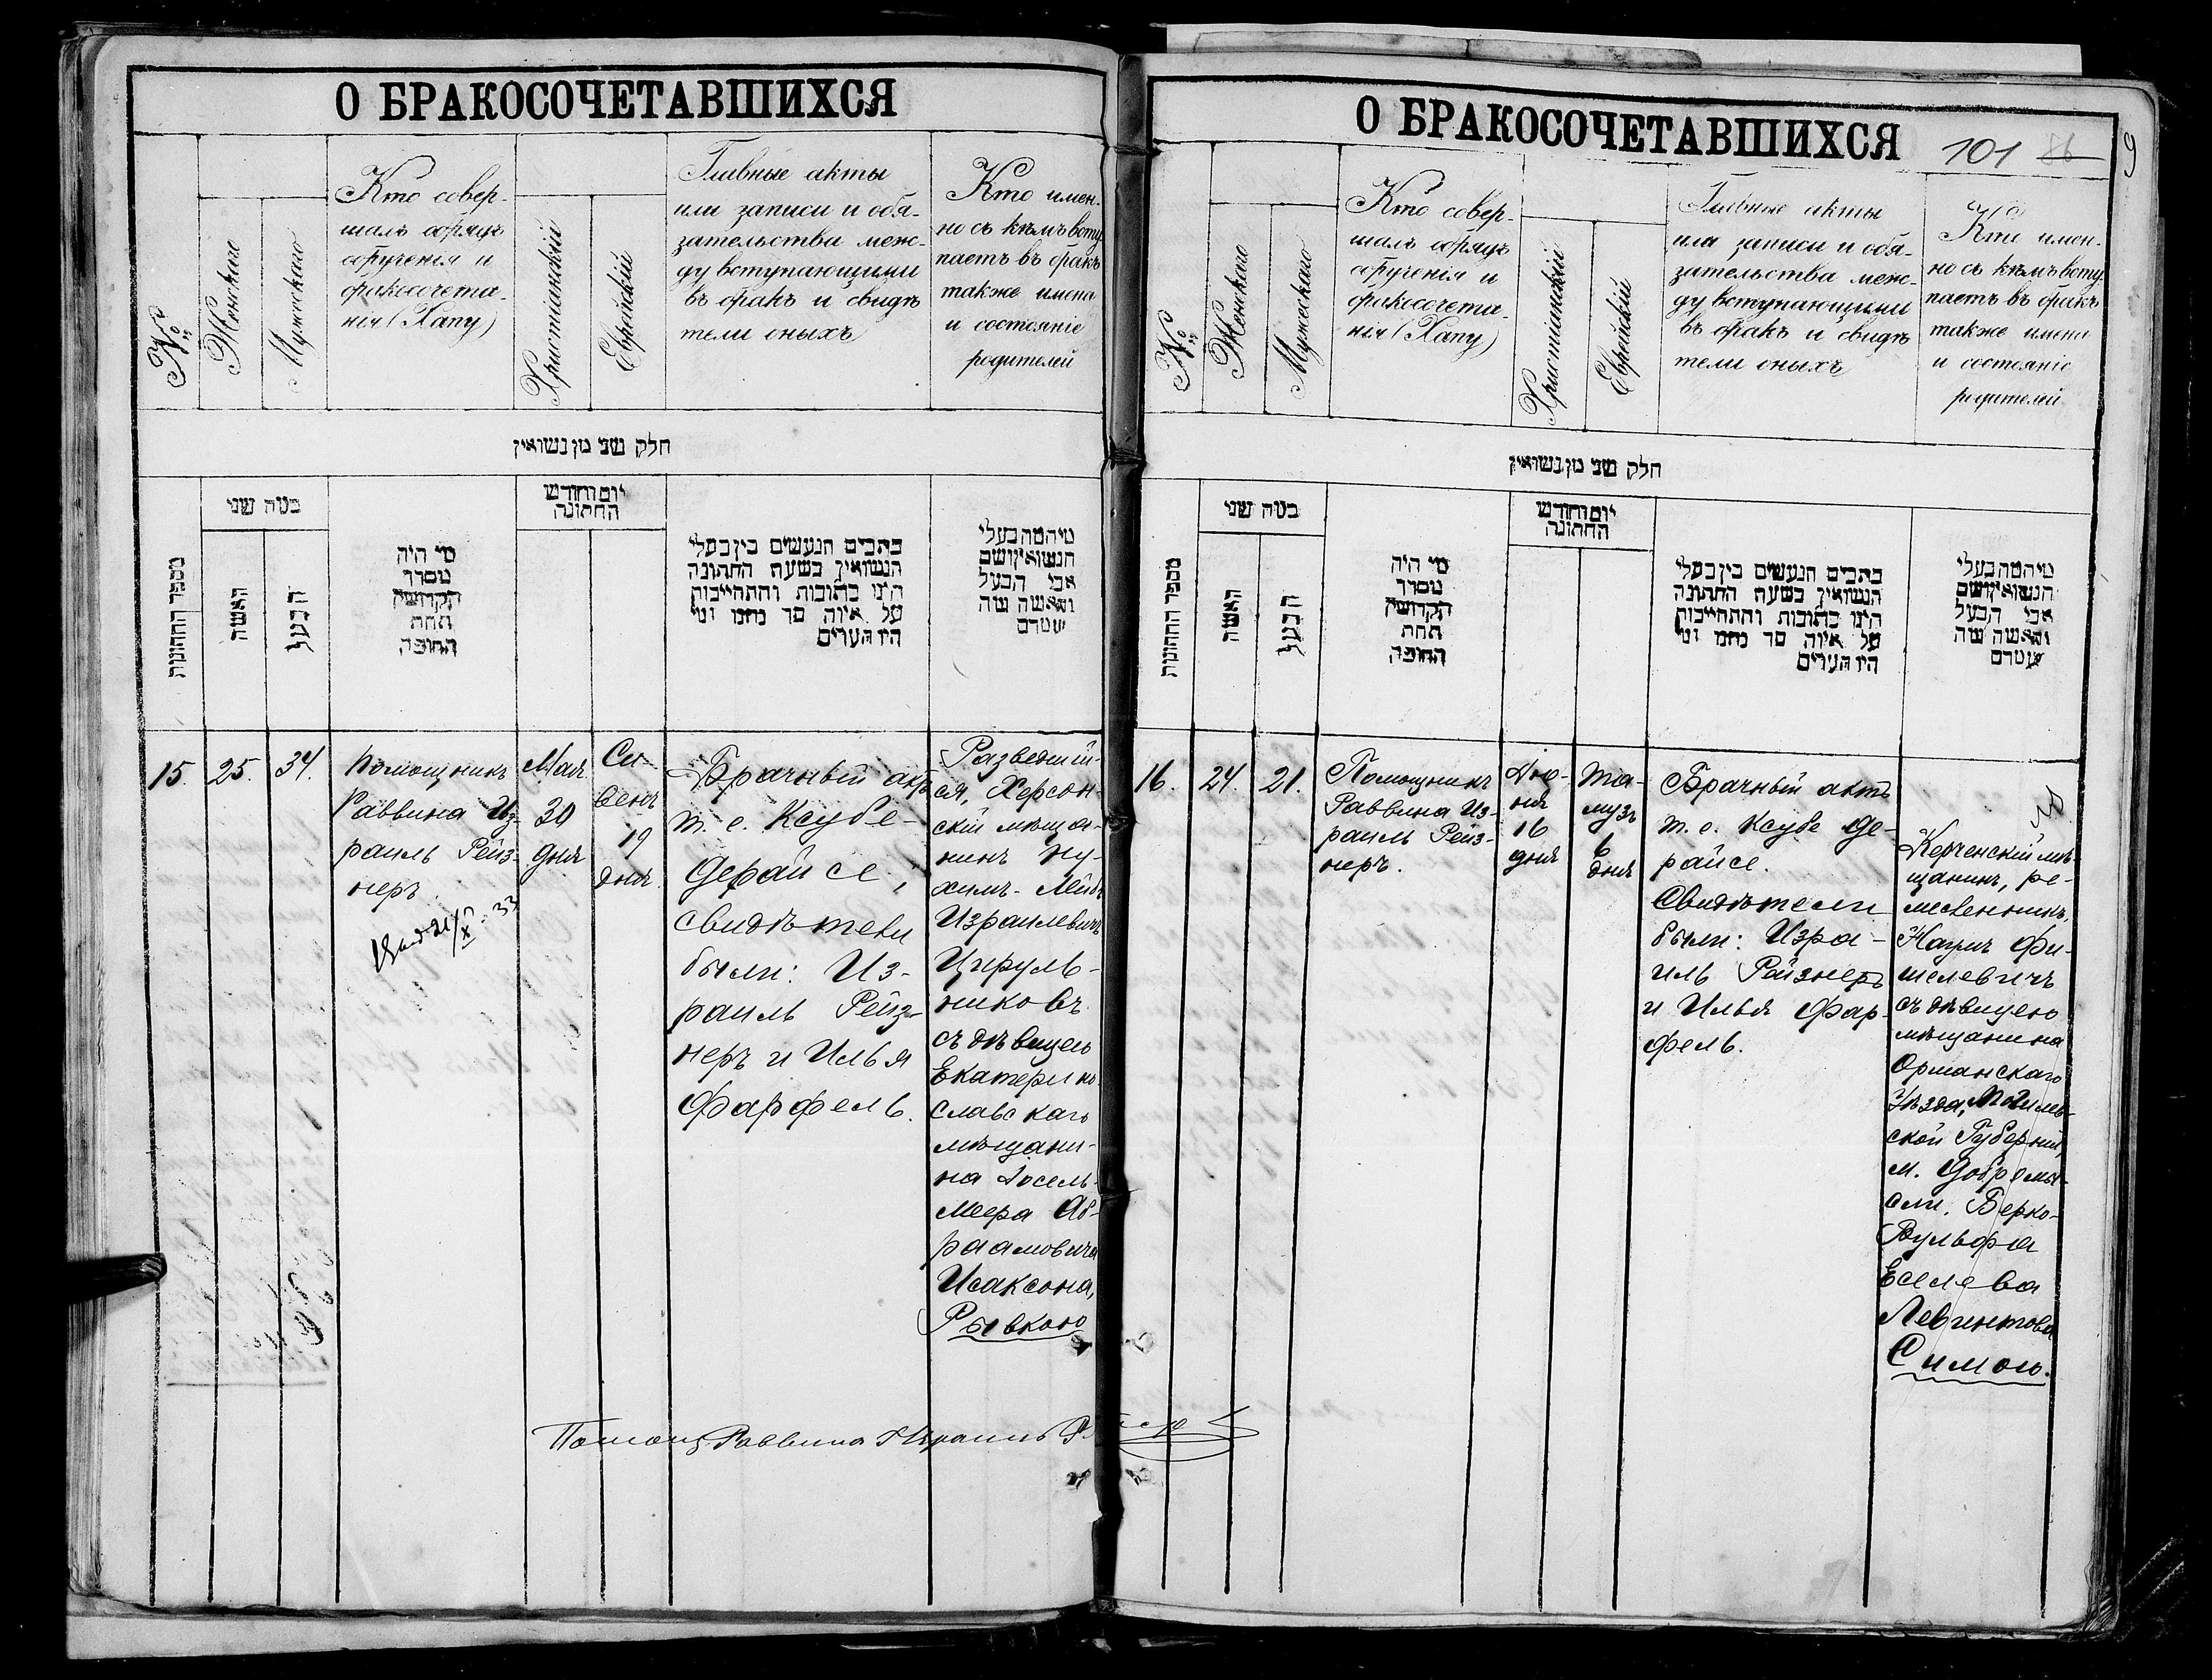 О БРАКОСОЧЕТАВШИХСЯ
№
Женскаго
Мужескаго
Кто совер-
шалъ обрядъ
обрученія и
бракосочета-
нія (Хапу)
Христіанскій
Еврейскій
Главные акты
или записи и обя-
зательства меж-
ду вступающими
въ бракъ и свидѣ
тели оныхъ
Кто имен-
но съ кѣмъ всту
паетъ въ бракъ
также имена
и состояніе
родителей
חלק שני מן נשואין
מספר החתונות
כמה שני
האשה
הבעל
מי היה
מסדר
הקדושין
תחת
החופה
יום וחודש
החתונה
כתבים הנעשים בין בעלי
הנשואין בשעת החתונה
היינו כתובות והתחייבות
על איזה סך נתנו ומי
היו העדים
מי המה בעלי
הנשואין ושם
אבי הבעל
והאשה מה
שמם
15.
25.
34.
Помощникъ
Раввина Из-
раиль Рейз-
неръ
Мая
30
дня
Си-
венъ
19
дня
Брачный актъ
т. е. Ксубе-
Дерайсе,
свидѣтели
были: Из-
раиль Рейз-
неръ и Илья
Фарфель.
Разведшій-
ся, Херсон-
скій мѣща-
нинъ Ну-
химъ-Лейбъ
Израилевичъ
Цируль-
никовъ
съ дѣвицею
Екатерино-
славскаго
мѣщани-
на Іосель-
Меера Аб-
раамовича
Исаксона,
Рывкою
Помощ. Раввина Израиль
О БРАКОСОЧЕТАВШИХСЯ
101
86
9
№
Женскаго
Мужескаго
Кто совер-
шалъ обрядъ
обрученія и
бракосочета-
нія (Хапу)
Христіанскій
Еврейскій
Главные акты
или записи и обя-
зательства меж-
ду вступающими
въ бракъ и свидѣ
тели оныхъ
Кто имен-
но съ кѣмъ всту
паетъ въ бракъ
также имена
и состояніе
родителей
חלק שני מן נשואין
מספר החתונות
כמה שני
האשה
הבעל
מי היה
מסדר
הקדושין
תחת
החופה
יום וחודש
החתונה
כתבים הנעשים בין בעלי
הנשואין בשעת החתונה
היינו כתובות והתחייבות
על איזה סך נתנו ומי
היו העדים
מי המה בעלי
הנשואין ושם
אבי הבעל
והאשה מה
שמם
16.
24.
21.
Помощникъ
Раввина Из-
раиль Рейз-
неръ.
Ию-
ня
16
дня
Та-
музъ
6
дня
Брачный актъ
т. е. Ксубе Де-
райсе.
Свидѣтели
были: Изра-
иль Рейзнеръ
и Илья Фар-
фель.
Керченскій мѣ-
щанинъ, ре-
месленникъ,
Фи-
шелевичъ
съ дѣвицею
мѣщанина
Оршанскаго
Уѣзда, Могилев-
ской Губерніи,
м. Добромы-
сли, Берко-
Вульфа
Еселева
Левинтова
Симою.